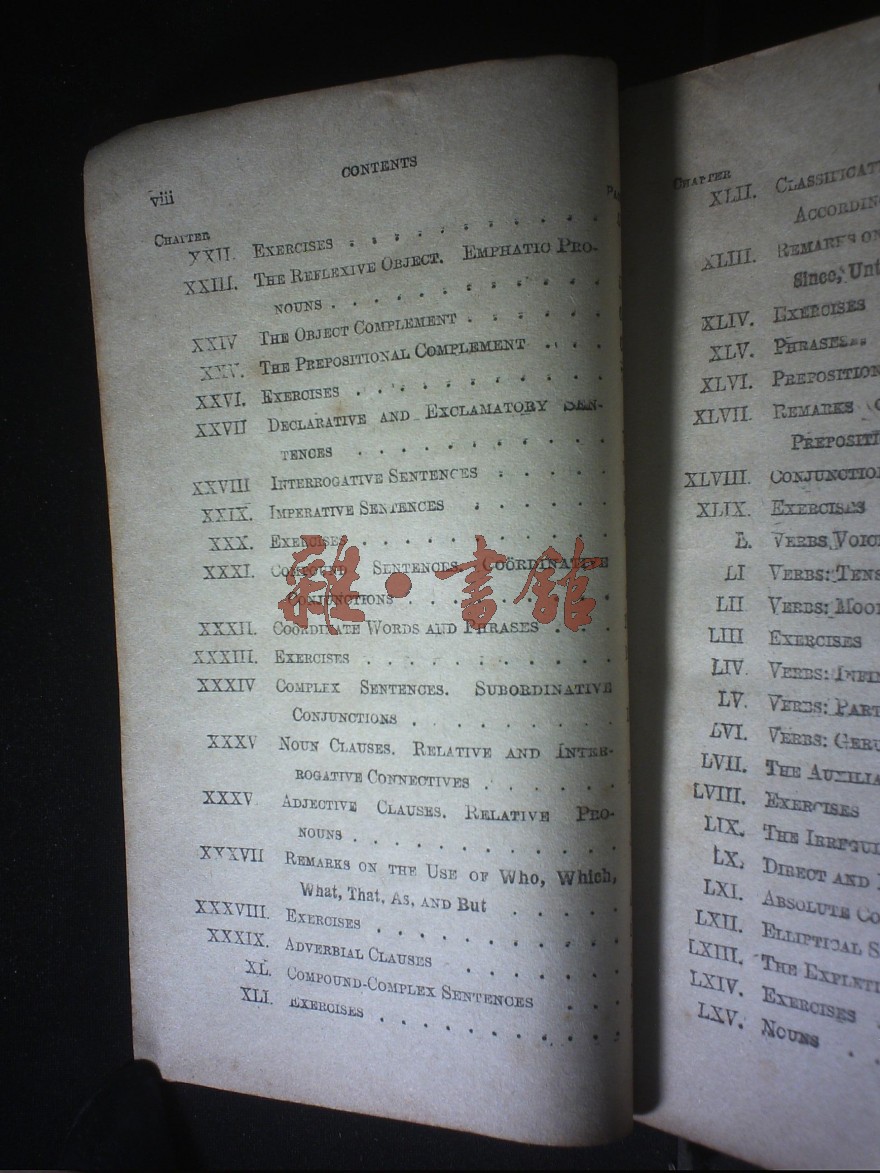 viii
CONTENTS
CHAPTER
XXII. EXERCISES
XXIII. THE REFLEXIVE OBJECT. EMPHATIC PRO-
NOUNS
XXIV THE OBJECT COMPLEMENT
XXV. THE PREPOSITIONAL COMPLEMENT
XXVI. EXERCISES
XXVII DECLARATIVE AND EXCLAMATORY SEN-
TENCES
XXVIII INTERROGATIVE SENTENCES
XXIX. IMPERATIVE SENTENCES
XXX. EXERCISES
XXXI. COMPOUND SENTENCES. COÖRDINATIVE
CONJUNCTIONS
XXXII. COÖRDINATE WORDS AND PHRASES
XXXIII. EXERCISES
XXXIV COMPLEX SENTENCES. SUBORDINATIVE
CONJUNCTIONS
XXXV NOUN CLAUSES. RELATIVE AND INTER-
ROGATIVE CONNECTIVES
XXXV ADJECTIVE CLAUSES. RELATIVE PRO-
NOUNS
XXXVII REMARKS ON THE USE OF Who, Which,
What, That, As, AND But
XXXVIII. EXERCISES
XXXIX. ADVERBIAL CLAUSES
XL. COMPOUND-COMPLEX SENTENCES
XLI. EXERCISES
雜·書館
CHAPTER
XLII. CLASSIFICAT
ACCORDING
XLIII. REMARKS ON
Since, Unt
XLIV. EXERCISES
XLV. PHRASES
XLVI. PREPOSITION
XLVII. REMARKS
PREPOSITI
XLVIII. CONJUNCTIO
XLIX. EXERCISES
L. VERBS, VOIC
LI VERBS: TENS
LII VERBS: MOOD
LIII EXERCISES
LIV. VERBS: INFIN
LV. VERBS: PART
LVI. VERBS: GERU
LVII. THE AUXILIA
LVIII. EXERCISES
LIX. THE IRREGUL
LX. DIRECT AND
LXI. ABSOLUTE CO
LXII. ELLIPTICAL S
LXIII. THE EXPLETI
LXIV. EXERCISES
LXV. NOUNS